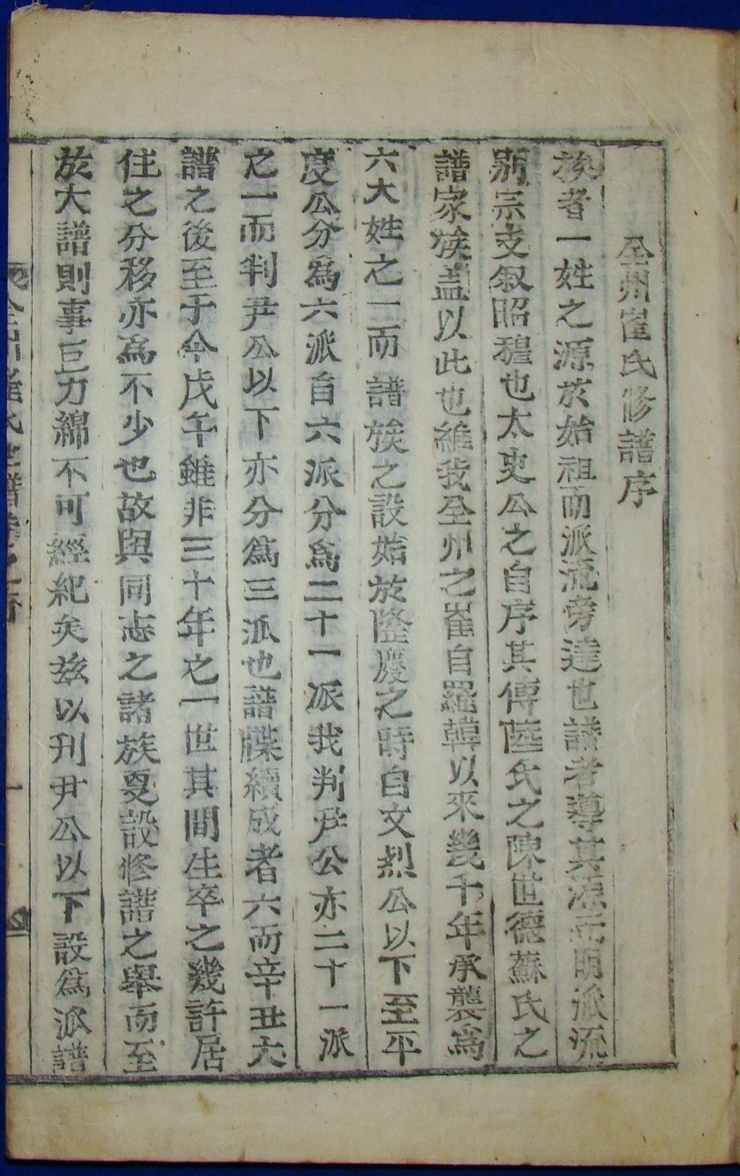 全州崔氏修譜序
族者一姓之源於始祖而派流旁達也譜者導其源而明派流
別宗支叙昭穆也太史公之自序其傳陸氏之陳世德蘇氏之
譜家族盖以此也維我全州之崔自羅韓以來幾千年承襲爲
六大姓之一而譜族之設始於隆慶之時自文烈公以下至平
度公分爲六派自六派分爲二十一派我判尹公亦二十一派
之一而判尹公以下亦分爲三派也譜牒續成者六而辛丑大
譜之後至于今戊午雖非三十年之一世其間生卒之幾許居
住之分移亦爲不少也故與同志之諸族更設修譜之舉而至
於大譜則事巨力綿不可經紀矣玆以判尹公以下設爲派譜
全州崔氏世譜卷之首
一